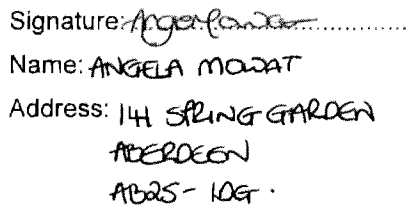 Signature: Angela Mowat
Name: ANGELA MOWAT
Address: 141 SPRING GARDEN
ABERDEEN
AB25 - 1DG.